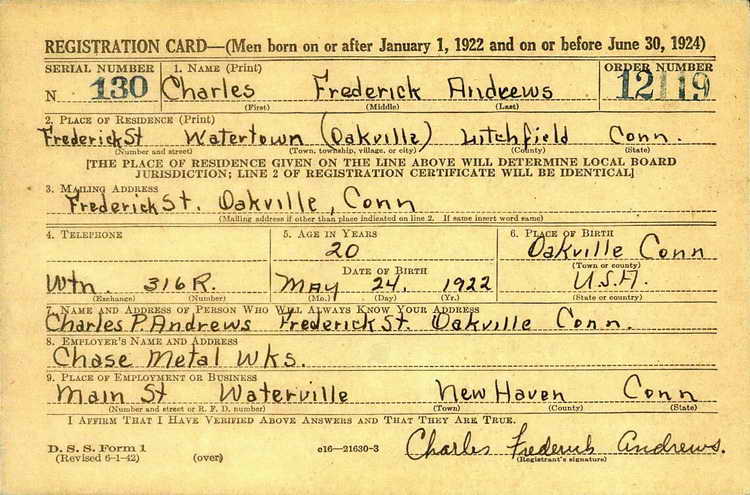 REGISTRATION CARD—(Men born on or after January 1, 1922 and on or before June 30, 1924)
SERIAL NUMBER 1. NAME (Print) ORDER NUMBER
N 130 Charles Frederick Andrews 12119
(First) (Middle) (Last)
2. PLACE OF RESIDENCE (Print)
Frederick St Watertown (Oakville) Litchfield Conn.
(Number and street) (Town, township, village, or city) (County) (State)
[THE PLACE OF RESIDENCE GIVEN ON THE LINE ABOVE WILL DETERMINE LOCAL BOARD
JURISDICTION; LINE 2 OF REGISTRATION CERTIFICATE WILL BE IDENTICAL]
3. MAILING ADDRESS
Frederick St. Oakville, Conn
(Mailing address if other than place indicated on line 2. If same insert word same)
4. TELEPHONE 5. AGE IN YEARS 6. PLACE OF BIRTH
20 Oakville Conn
DATE OF BIRTH (Town or county)
Wtn. 316 R. MAY 24, 1922 U.S.A.
(Exchange) (Number) (Mo.) (Day) (Yr.) (State or country)
7. NAME AND ADDRESS OF PERSON WHO WILL ALWAYS KNOW YOUR ADDRESS
Charles P. Andrews Frederick St. Oakville Conn.
8. EMPLOYER'S NAME AND ADDRESS
Chase Metal Wks.
9. PLACE OF EMPLOYMENT OR BUSINESS
Main St Waterville New Haven Conn
(Number and street or R. F. D. number) (Town) (County) (State)
I AFFIRM THAT I HAVE VERIFIED ABOVE ANSWERS AND THAT THEY ARE TRUE.
D. S. S. Form 1
(Revised 6-1-42) (over) c16—21630-3 Charles Frederick Andrews.
(Registrant's signature)